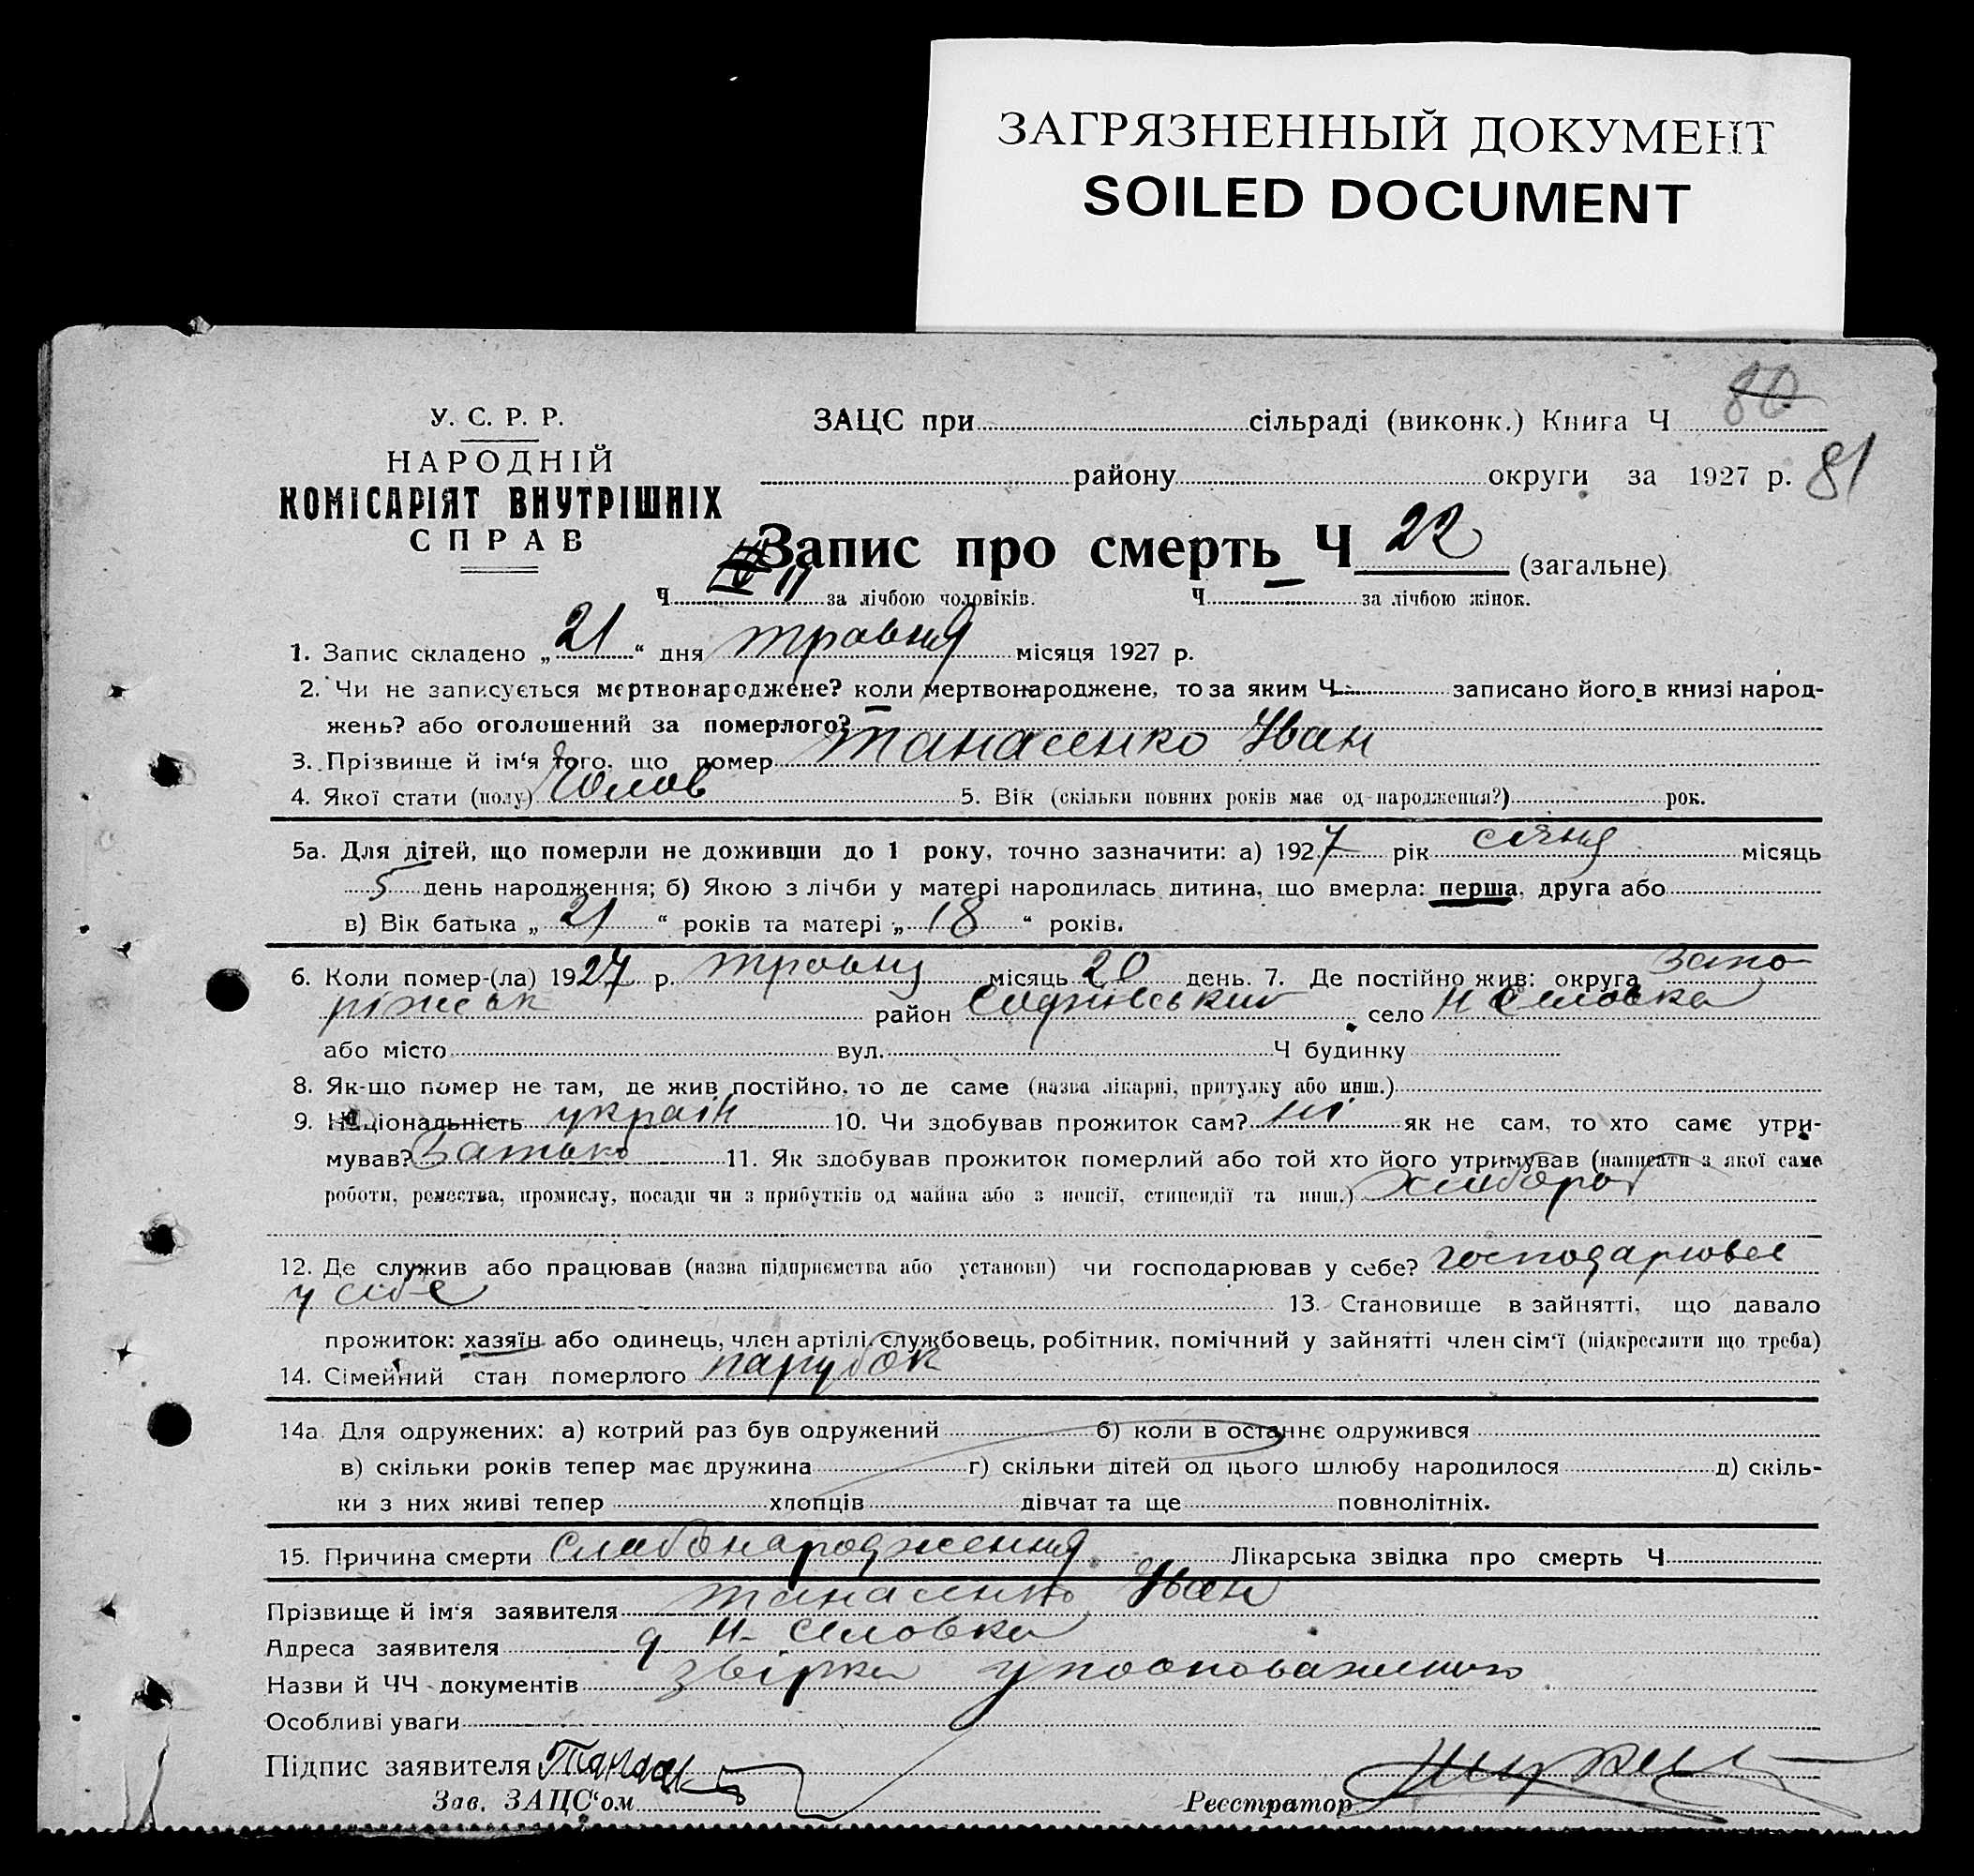 ЗАГРЯЗНЕННЫЙ ДОКУМЕНТ
SOILED DOCUMENT
80
У. С. Р. Р.
НАРОДНІЙ
КОМІСАРІЯТ ВНУТРІШНІХ
СПРАВ
ЗАЦС при сільраді (виконк.) Книга Ч
району округи за 1927 р. 81
Запис про смерть Ч 22 (загальне)
Ч 11 за лічбою чоловіків. Ч — за лічбою жінок.
1. Запис складено „21“ дня травня місяця 1927 р.
2. Чи не записується мертвонароджене? коли мертвонароджене, то за яким Ч записано його в книзі народ-
жень? або оголошений за померлого? —
3. Прізвище й ім‘я того, що помер Танасенко Іван
4. Якої стати (полу) Чолов 5. Вік (скільки повних років має од народження?) рок.
5а. Для дітей, що померли не доживши до 1 року, точно зазначити: а) 1927 рік січня місяць
5 день народження; б) Якою з лічби у матері народилась дитина, що вмерла: перша, друга або
в) Вік батька „21“ років та матері „18“ років.
6. Коли помер-(ла) 1927 р. травня місяць 20 день. 7. Де постійно жив: округа Запо
ріжськ район село
або місто вул. Ч будинку
8. Як-що помер не там, де жив постійно, то де саме (назва лікарні, притулку або инш.)
9. Національність україн 10. Чи здобував прожиток сам? ні як не сам, то хто саме утри-
мував? Батько 11. Як здобував прожиток померлий або той хто його утримував (написати з якої саме
роботи, ремества, промислу, посади чи з прибутків од майна або з пенсії, стипендії та инш.) Хлібороб
12. Де служив або працював (назва підприємства або установи) чи господарював у себе? господарював
у себе 13. Становище в зайнятті, що давало
прожиток: хазяїн або одинець, член артілі, службовець, робітник, помічний у зайнятті член сім‘ї (підкреслити що треба)
14. Сімейний стан померлого парубок
14а. Для одружених: а) котрий раз був одружений б) коли в останнє одружився
в) скільки років тепер має дружина г) скільки дітей од цього шлюбу народилося д) скіль-
ки з них живі тепер хлопців дівчат та ще повнолітніх.
15. Причина смерти Слабонародження Лікарська звідка про смерть Ч
Прізвище й ім‘я заявителя Танасенко Іван
Адреса заявителя
Назви й ЧЧ документів звірка уповноваженого
Особливі уваги
Підпис заявителя
Зав. ЗАЦС‘ом Реєстратор